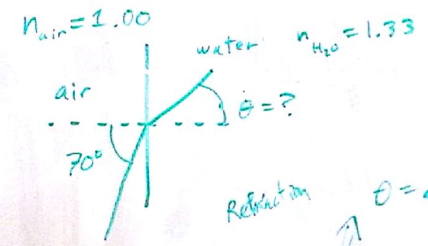 n_air = 1.00
water n_H₂O = 1.33
air
θ = ?
70°
Refraction
θ =